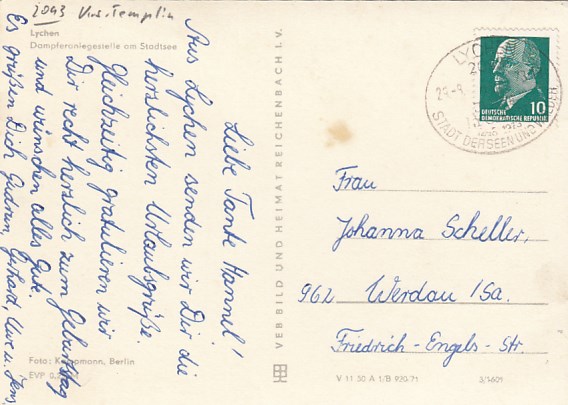 2093 Krs. Templin
Lychen
Dampferanlegestelle am Stadtsee
Liebe Tante Hannel!
Aus Lychen senden wir Dir die
herzlichsten Urlaubsgrüße.
Gleichzeitig gratulieren wir
Dir recht herzlich zum Geburtstag
und wünschen alles Gute.
Es grüßen Dich Gudrun, Gerhard, Uwe u. Jens
Foto: Koppmann, Berlin
EVP 0,
VEB BILD UND HEIMAT REICHENBACH I. V.
LYC
STADT DER SEEN UND WÄLDER
DEUTSCHE
DEMOKRATISCHE REPUBLIK
10
Frau
Johanna Scheller,
962 Werdau / Sa.
Friedrich-Engels-Str.
V 11 50 A 1/B 920/71